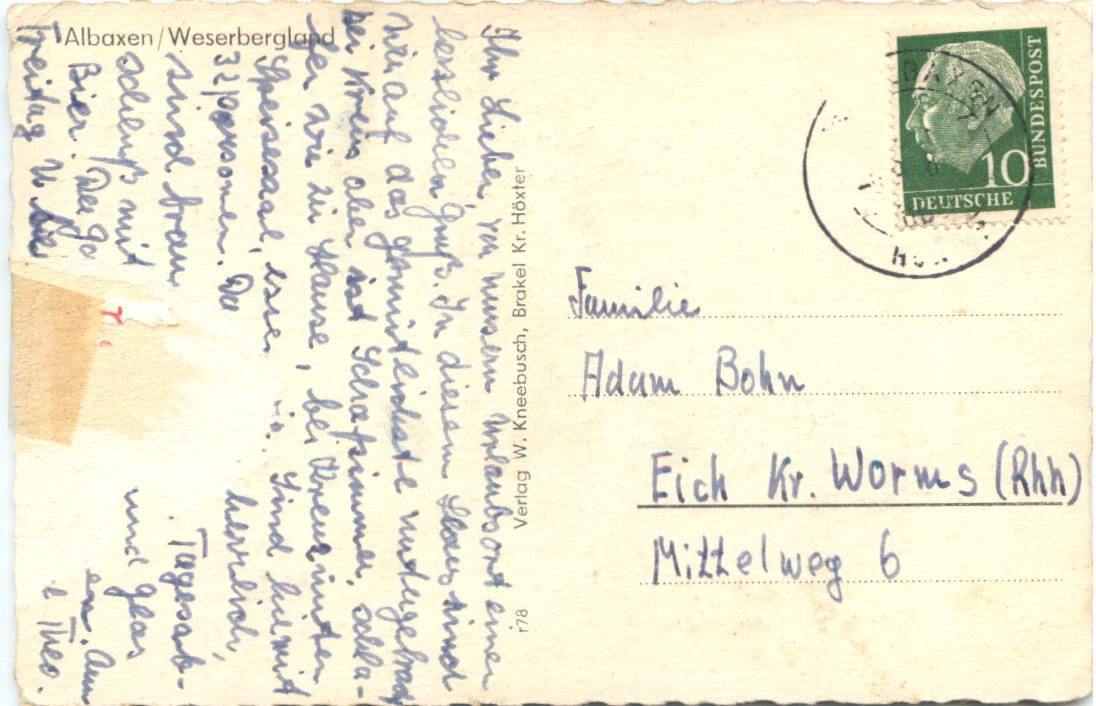 Albaxen/Weserbergland
Ihr Lieben, von unserm Urlaubsort einen
herzlichen Gruß. In diesem Haus sind
wir auf das gemütlichste untergebracht
bei Kreus oben ist Schlafzimmer, schla-
fen wie zu Hause, bei Kreuz unten
Speisesaal, esse Sind hier mit
32 personen. Da herrlich,
sind fran Tagesab-
schluß mit und Glas
Bier. Da ga en. Am
Freitag Theo.
Verlag W. Kneebusch, Brakel Kr. Höxter
r78
BUNDESPOST
10
DEUTSCHE
Familie
Adam Bohn
Eich Kr. Worms (Rhh)
Mittelweg 6